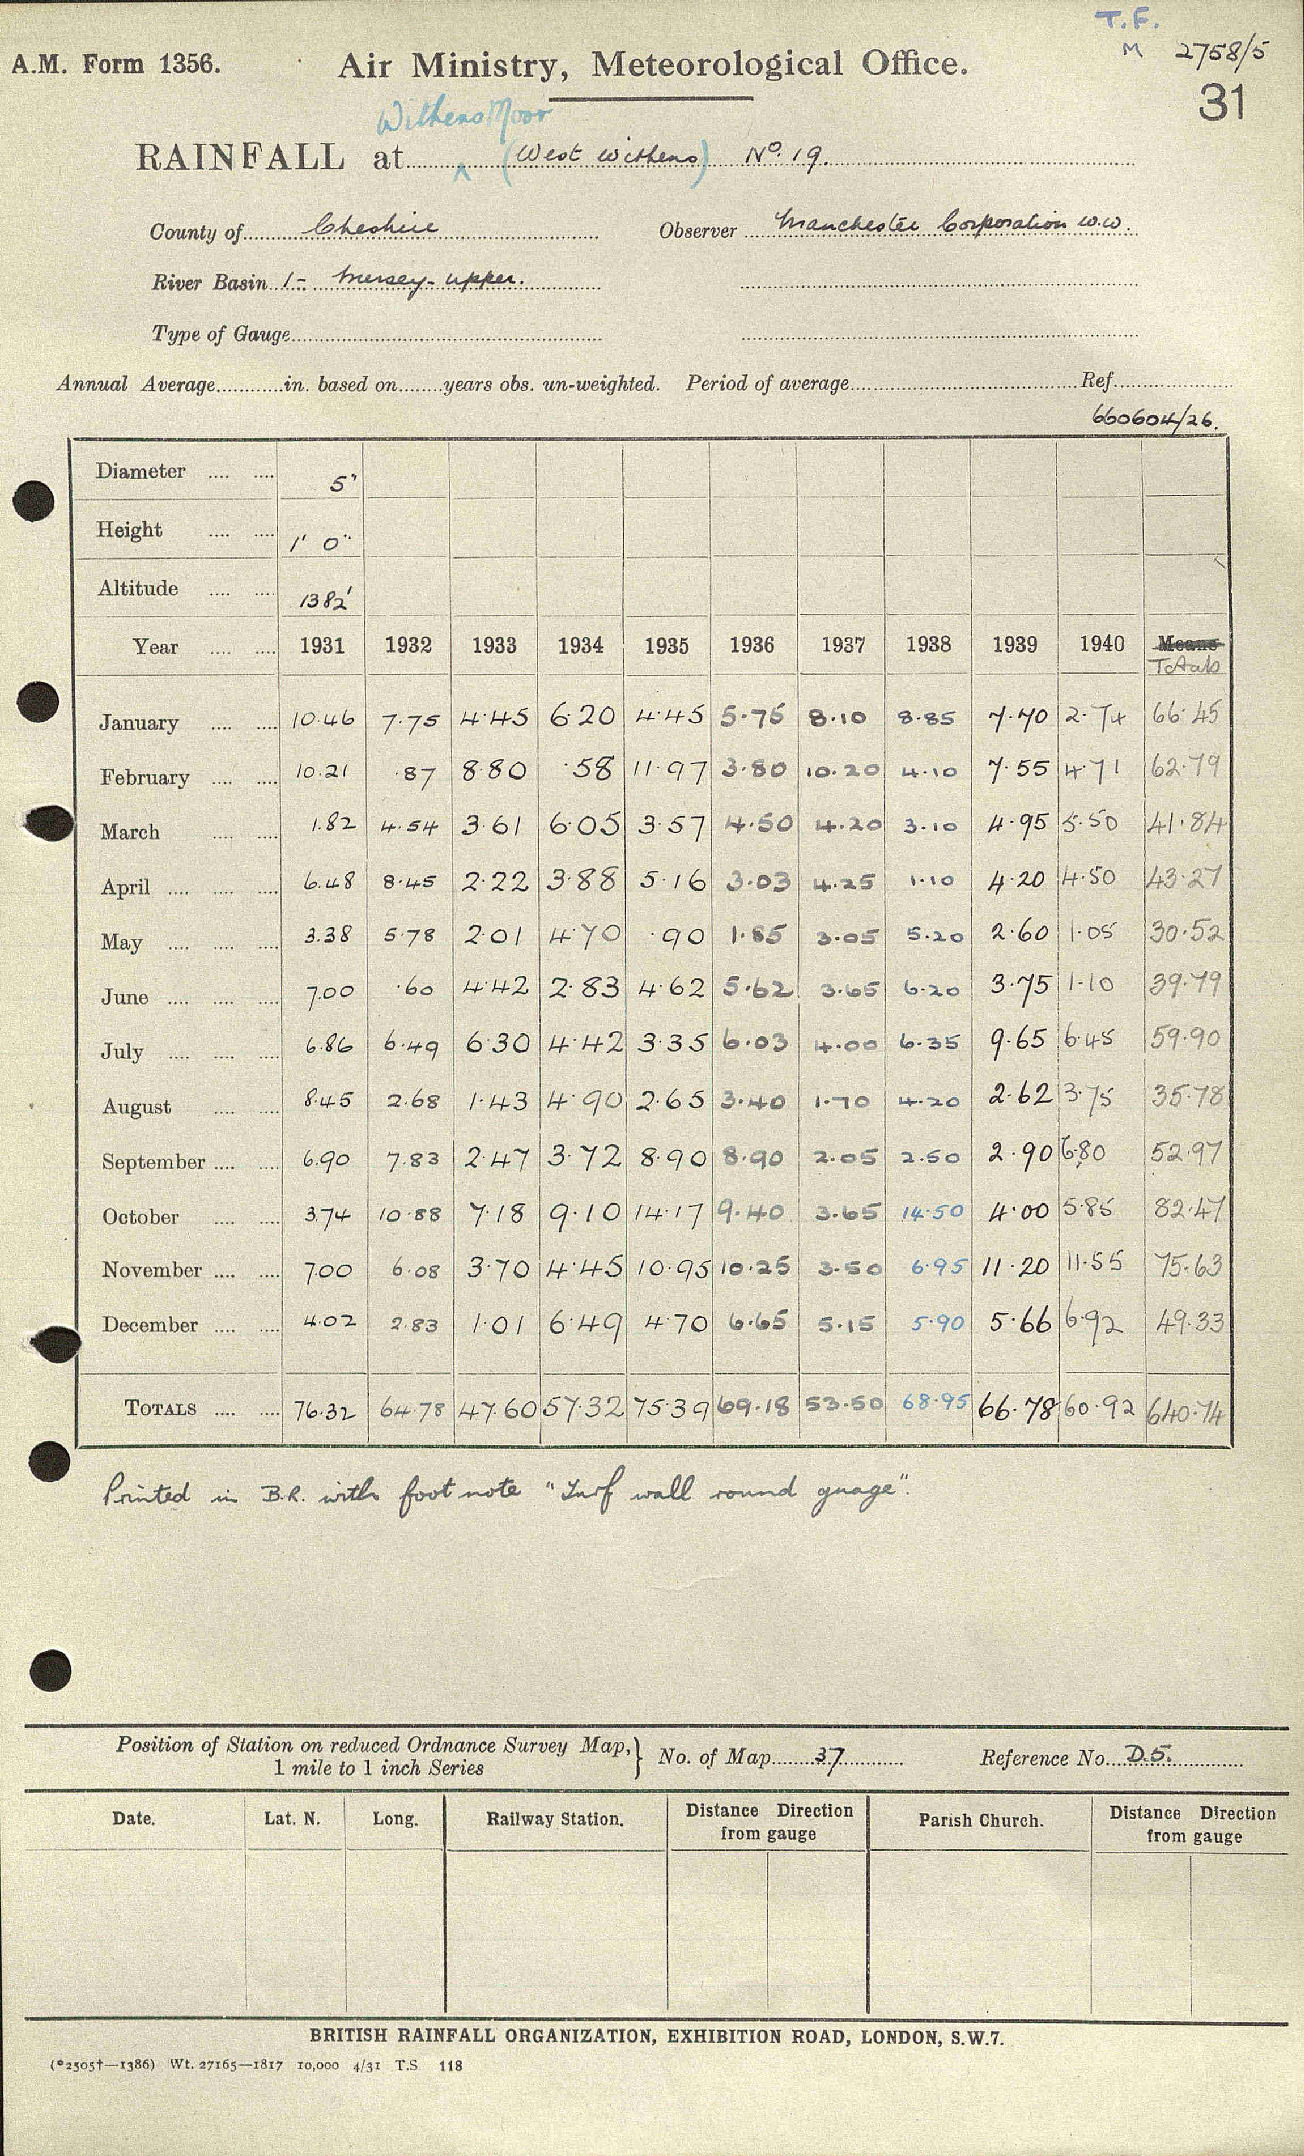 T.F.
A.M. Form 1356. Air Ministry, Meteorological Office. M 2758/5
31
Withens Moor
RAINFALL at (West Withens) No. 19.
County of Cheshire Observer Manchester Corporation W.W.
River Basin 1- Mersey-upper.
Type of Gauge
Annual Average in. based on years obs. un-weighted. Period of average Ref
660604/26.
Diameter 5"
Height 1' 0"
Altitude 1382'
Year 1931 1932 1933 1934 1935 1936 1937 1938 1939 1940 Means
Totals
January 10.46 7.75 4.45 6.20 4.45 5.75 8.10 8.85 7.70 2.74 66.45
February 10.21 .87 8.80 .58 11.97 3.80 10.20 4.10 7.55 4.71 62.79
March 1.82 4.54 3.61 6.05 3.57 4.50 4.20 3.10 4.95 5.50 41.84
April 6.48 8.45 2.22 3.88 5.16 3.03 4.25 1.10 4.20 4.50 43.27
May 3.38 5.78 2.01 4.70 .90 1.85 3.05 5.20 2.60 1.05 30.52
June 7.00 .60 4.42 2.83 4.62 5.62 3.65 6.20 3.75 1.10 39.79
July 6.86 6.49 6.30 4.42 3.35 6.03 4.00 6.35 9.65 6.45 59.90
August 8.45 2.68 1.43 4.90 2.65 3.40 1.70 4.20 2.62 3.75 35.78
September 6.90 7.83 2.47 3.72 8.90 8.90 2.05 2.50 2.90 6.80 52.97
October 3.74 10.88 7.18 9.10 14.17 9.40 3.65 14.50 4.00 5.85 82.47
November 7.00 6.08 3.70 4.45 10.95 10.25 3.50 6.95 11.20 11.55 75.63
December 4.02 2.83 1.01 6.49 4.70 6.65 5.15 5.90 5.66 6.92 49.33
TOTALS 76.32 64.78 47.60 57.32 75.39 69.18 53.50 68.95 66.78 60.92 640.74
Printed in B.R. with foot note "Turf wall round guage".
Position of Station on reduced Ordnance Survey Map, } No. of Map 37 Reference No. D.5.
1 mile to 1 inch Series
Date. Lat. N. Long. Railway Station. Distance Direction from gauge Parish Church. Distance Direction from gauge
BRITISH RAINFALL ORGANIZATION, EXHIBITION ROAD, LONDON, S.W.7.
(*2505†—1386) Wt. 27165—1817 10,000 4/31 T.S. 118